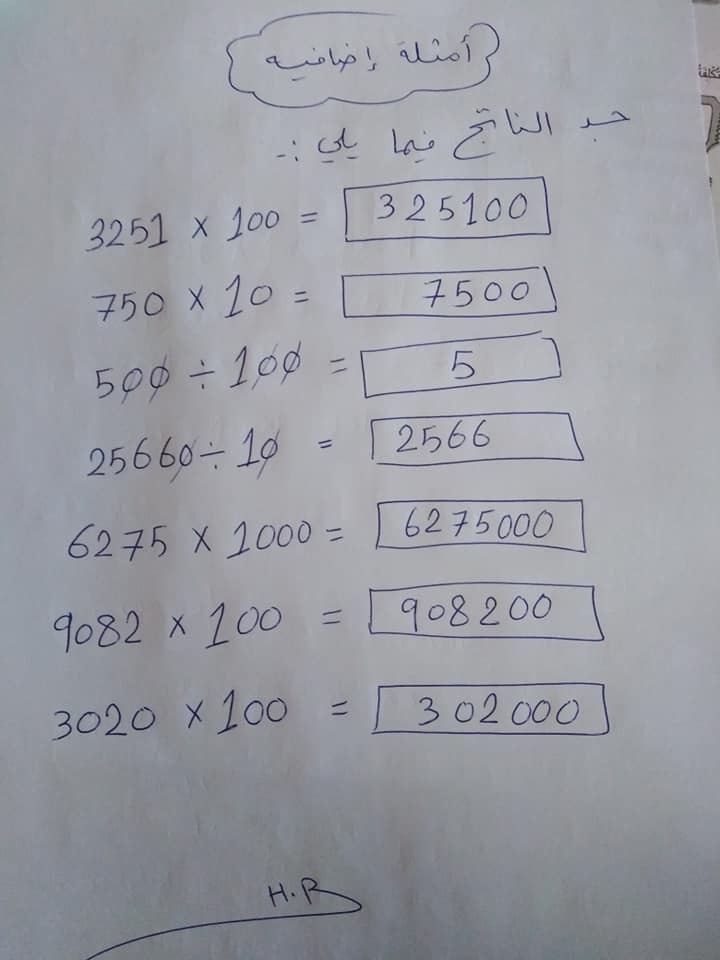 أمثلة إضافيه
جد الناتج فيما يلي :-
3251 × 100 = 325100
750 × 10 = 7500
500 ÷ 100 = 5
25660 ÷ 10 = 2566
6275 × 1000 = 6275000
9082 × 100 = 908200
3020 × 100 = 302000
H.R